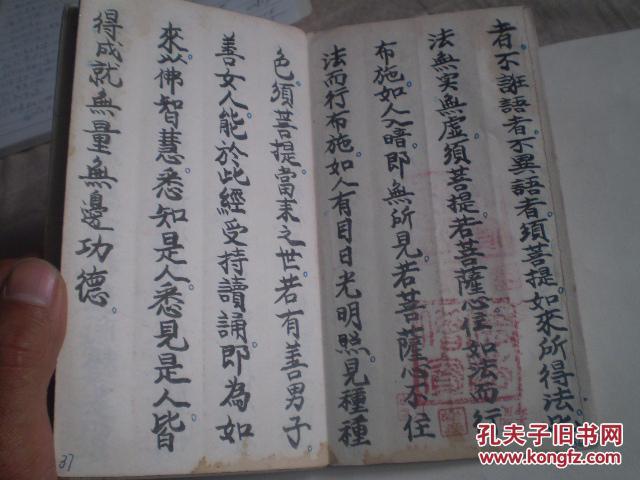 者不誑語者不異語者須菩提如來所得法此
法無実無虛須菩提若菩薩心住如法而行
布施如人入暗即無所見若菩薩心不住
法而行布施如人有目日光明照見種種
色須菩提當来之世若有善男子
善女人能於此經受持讀誦即為如
來以佛智慧悉知是人悉見是人皆
得成就無量無邊功德
37
孔夫子旧书网
www.kongfz.com